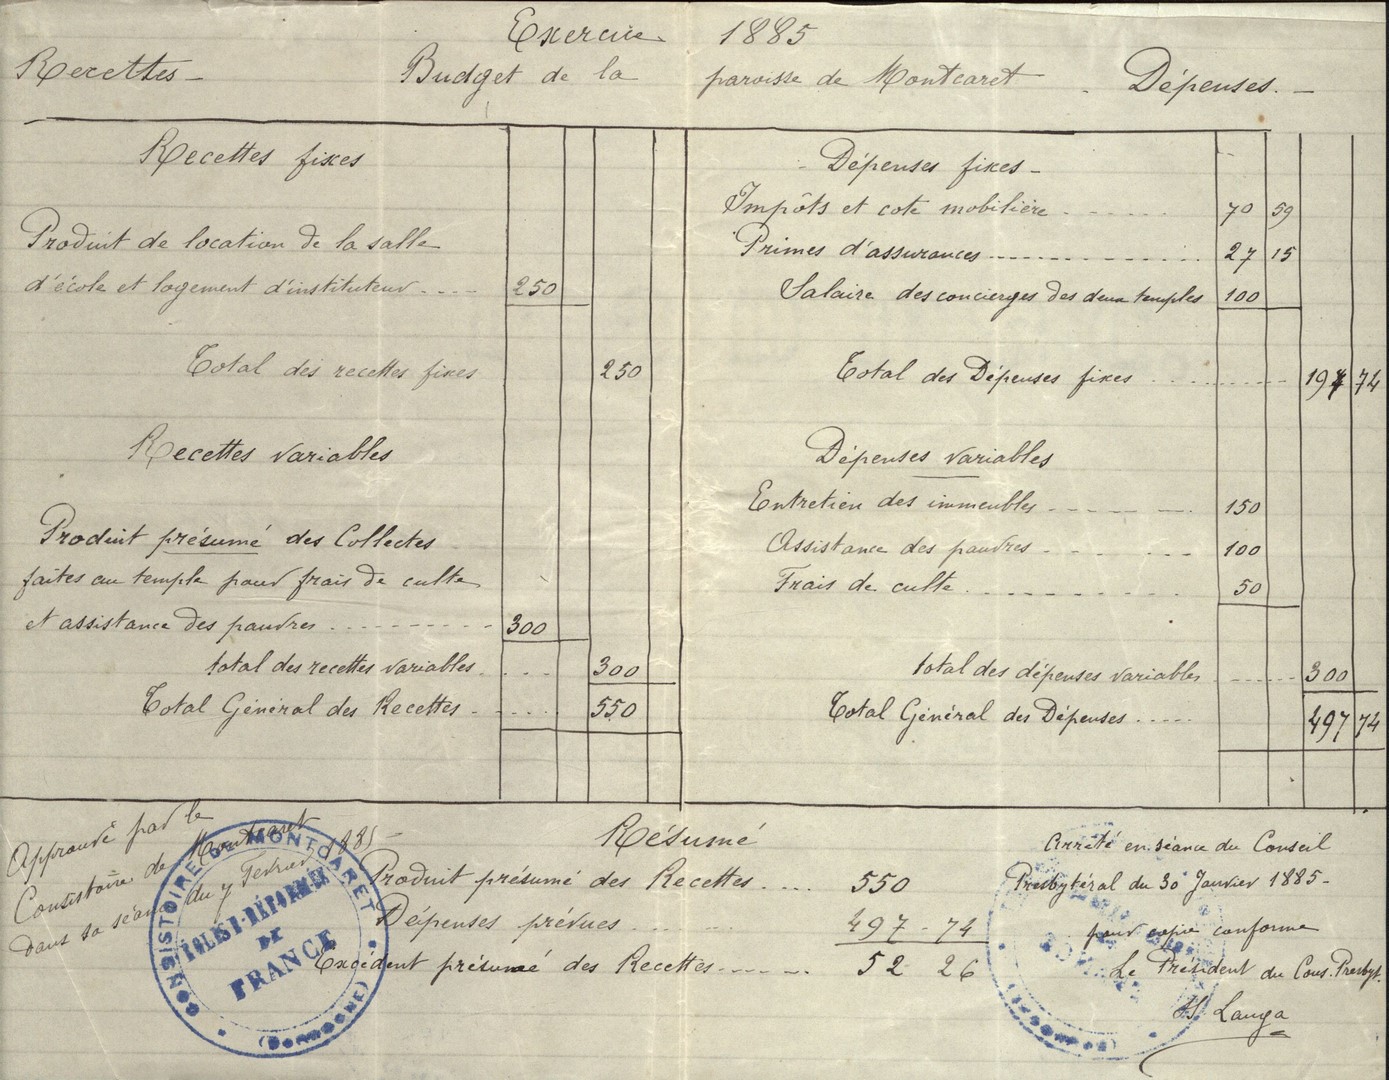 Exercice 1885
Recettes - Budget de la paroisse de Montcaret - Dépenses. -
Recettes fixes
Produit de location de la salle
d'école et logement d'instituteur .... 250
Total des recettes fixes 250
Recettes variables
Produit présumé des Collectes
faites au temple pour frais de culte
et assistance des pauvres .......... 300
total des recettes variables .... 300
Total Général des Recettes ..... 550
- Dépenses fixes -
Impôts et cote mobilière ...... 70 59
Primes d'assurances ............... 27 15
Salaire des concierges des deux temples 100
Total des Dépenses fixes ........... 197 74
Dépenses variables
Entretien des immeubles ........ 150
Assistance des pauvres ...... 100
Frais de culte .......... 50
total des dépenses variables ...... 300
Total Général des Dépenses ..... 497 74
Approuvé par le
Consistoire de Montcaret
dans sa séance du 7 Février 1885 -
CONSISTOIRE DE MONTCARET
EGLISE RÉFORMÉE
DE
FRANCE
(DORDOGNE)
Résumé
Produit présumé des Recettes .... 550
Dépenses prévues ...... 497 - 74
Excédent présumé des Recettes ...... 52 26
Arrêté en séance du Conseil
Presbytéral du 30 Janvier 1885 -
pour copie conforme
Le Président du Cons. Presbyt.
Langa